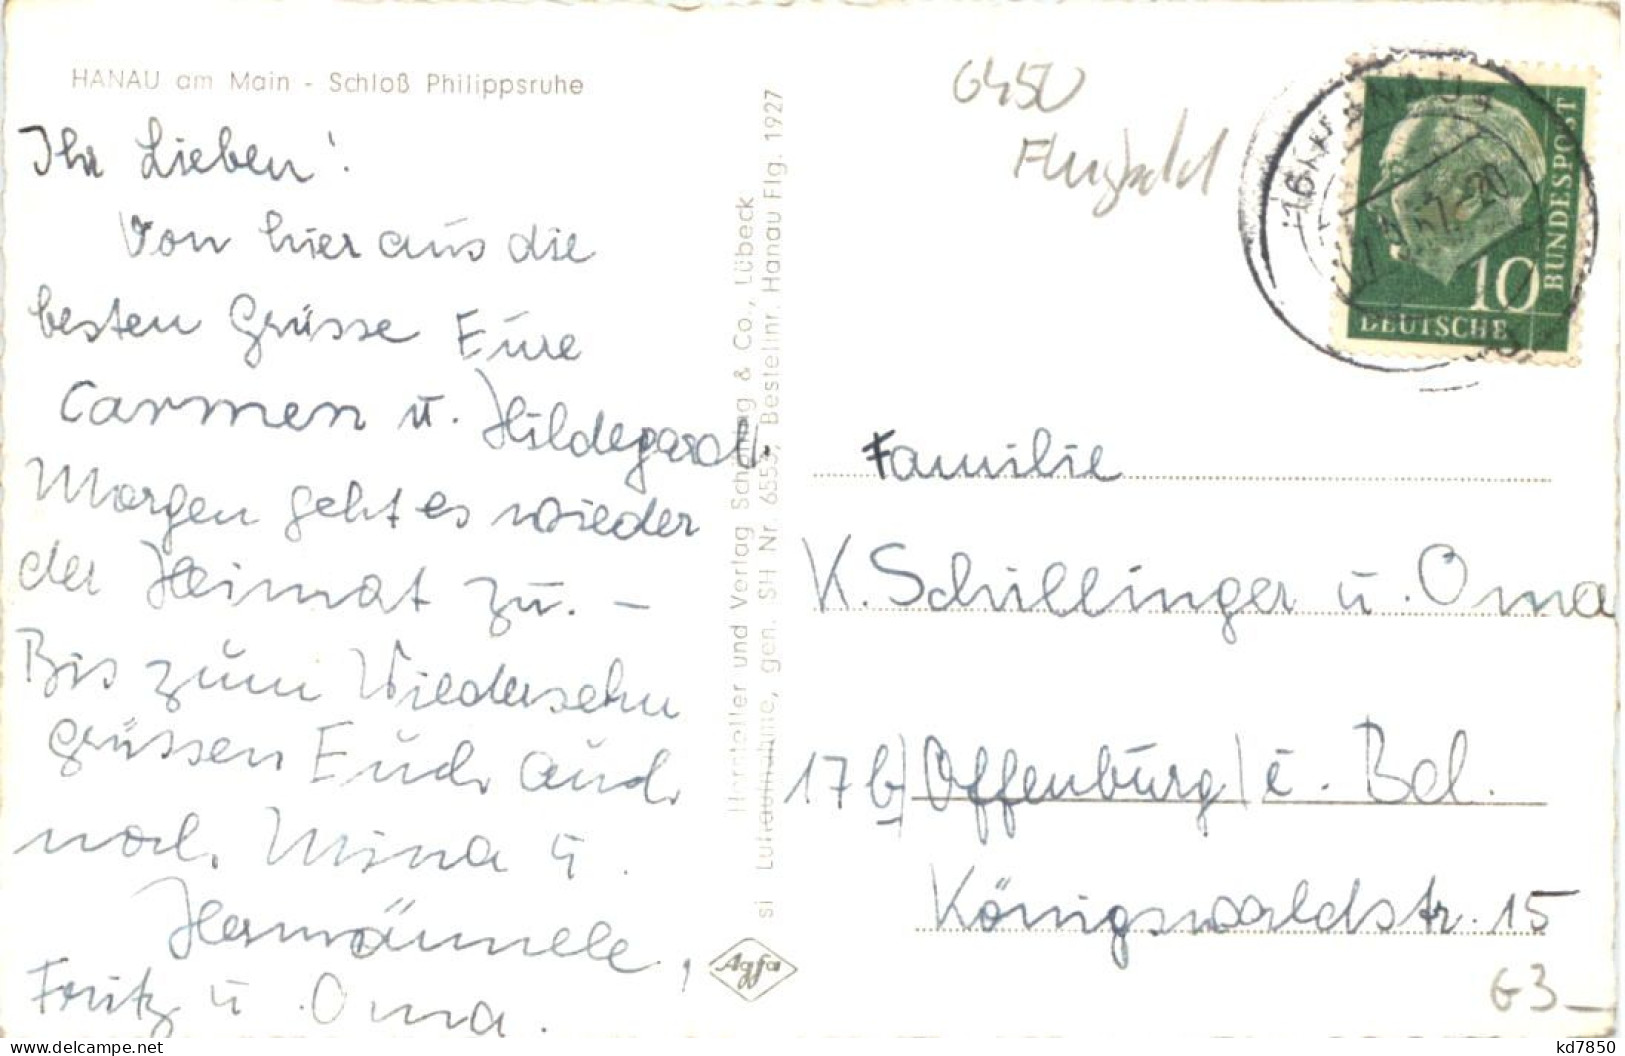 HANAU am Main - Schloß Philippsruhe
Ihr Lieben!
Von hier aus die
besten Grüsse Eure
Carmen u. Hildegard.
Morgen geht es wieder
der Heimat zu. –
Bis zum Wiedersehn
grüssen Euch auch
noch Mina u.
Hermännele,
Fritz u. Oma.
Hersteller und Verlag Schöning & Co., Lübeck
si Luftaufnahme, gen. SH Nr. 6553, Bestellnr. Hanau Flg. 1927
Agfa
6450
Flugbild
HANAU
DEUTSCHE
BUNDESPOST
10
Familie
K. Schillinger u. Oma
17b) Offenburg / i. Bd.
Königswaldstr. 15
G3
kd7850